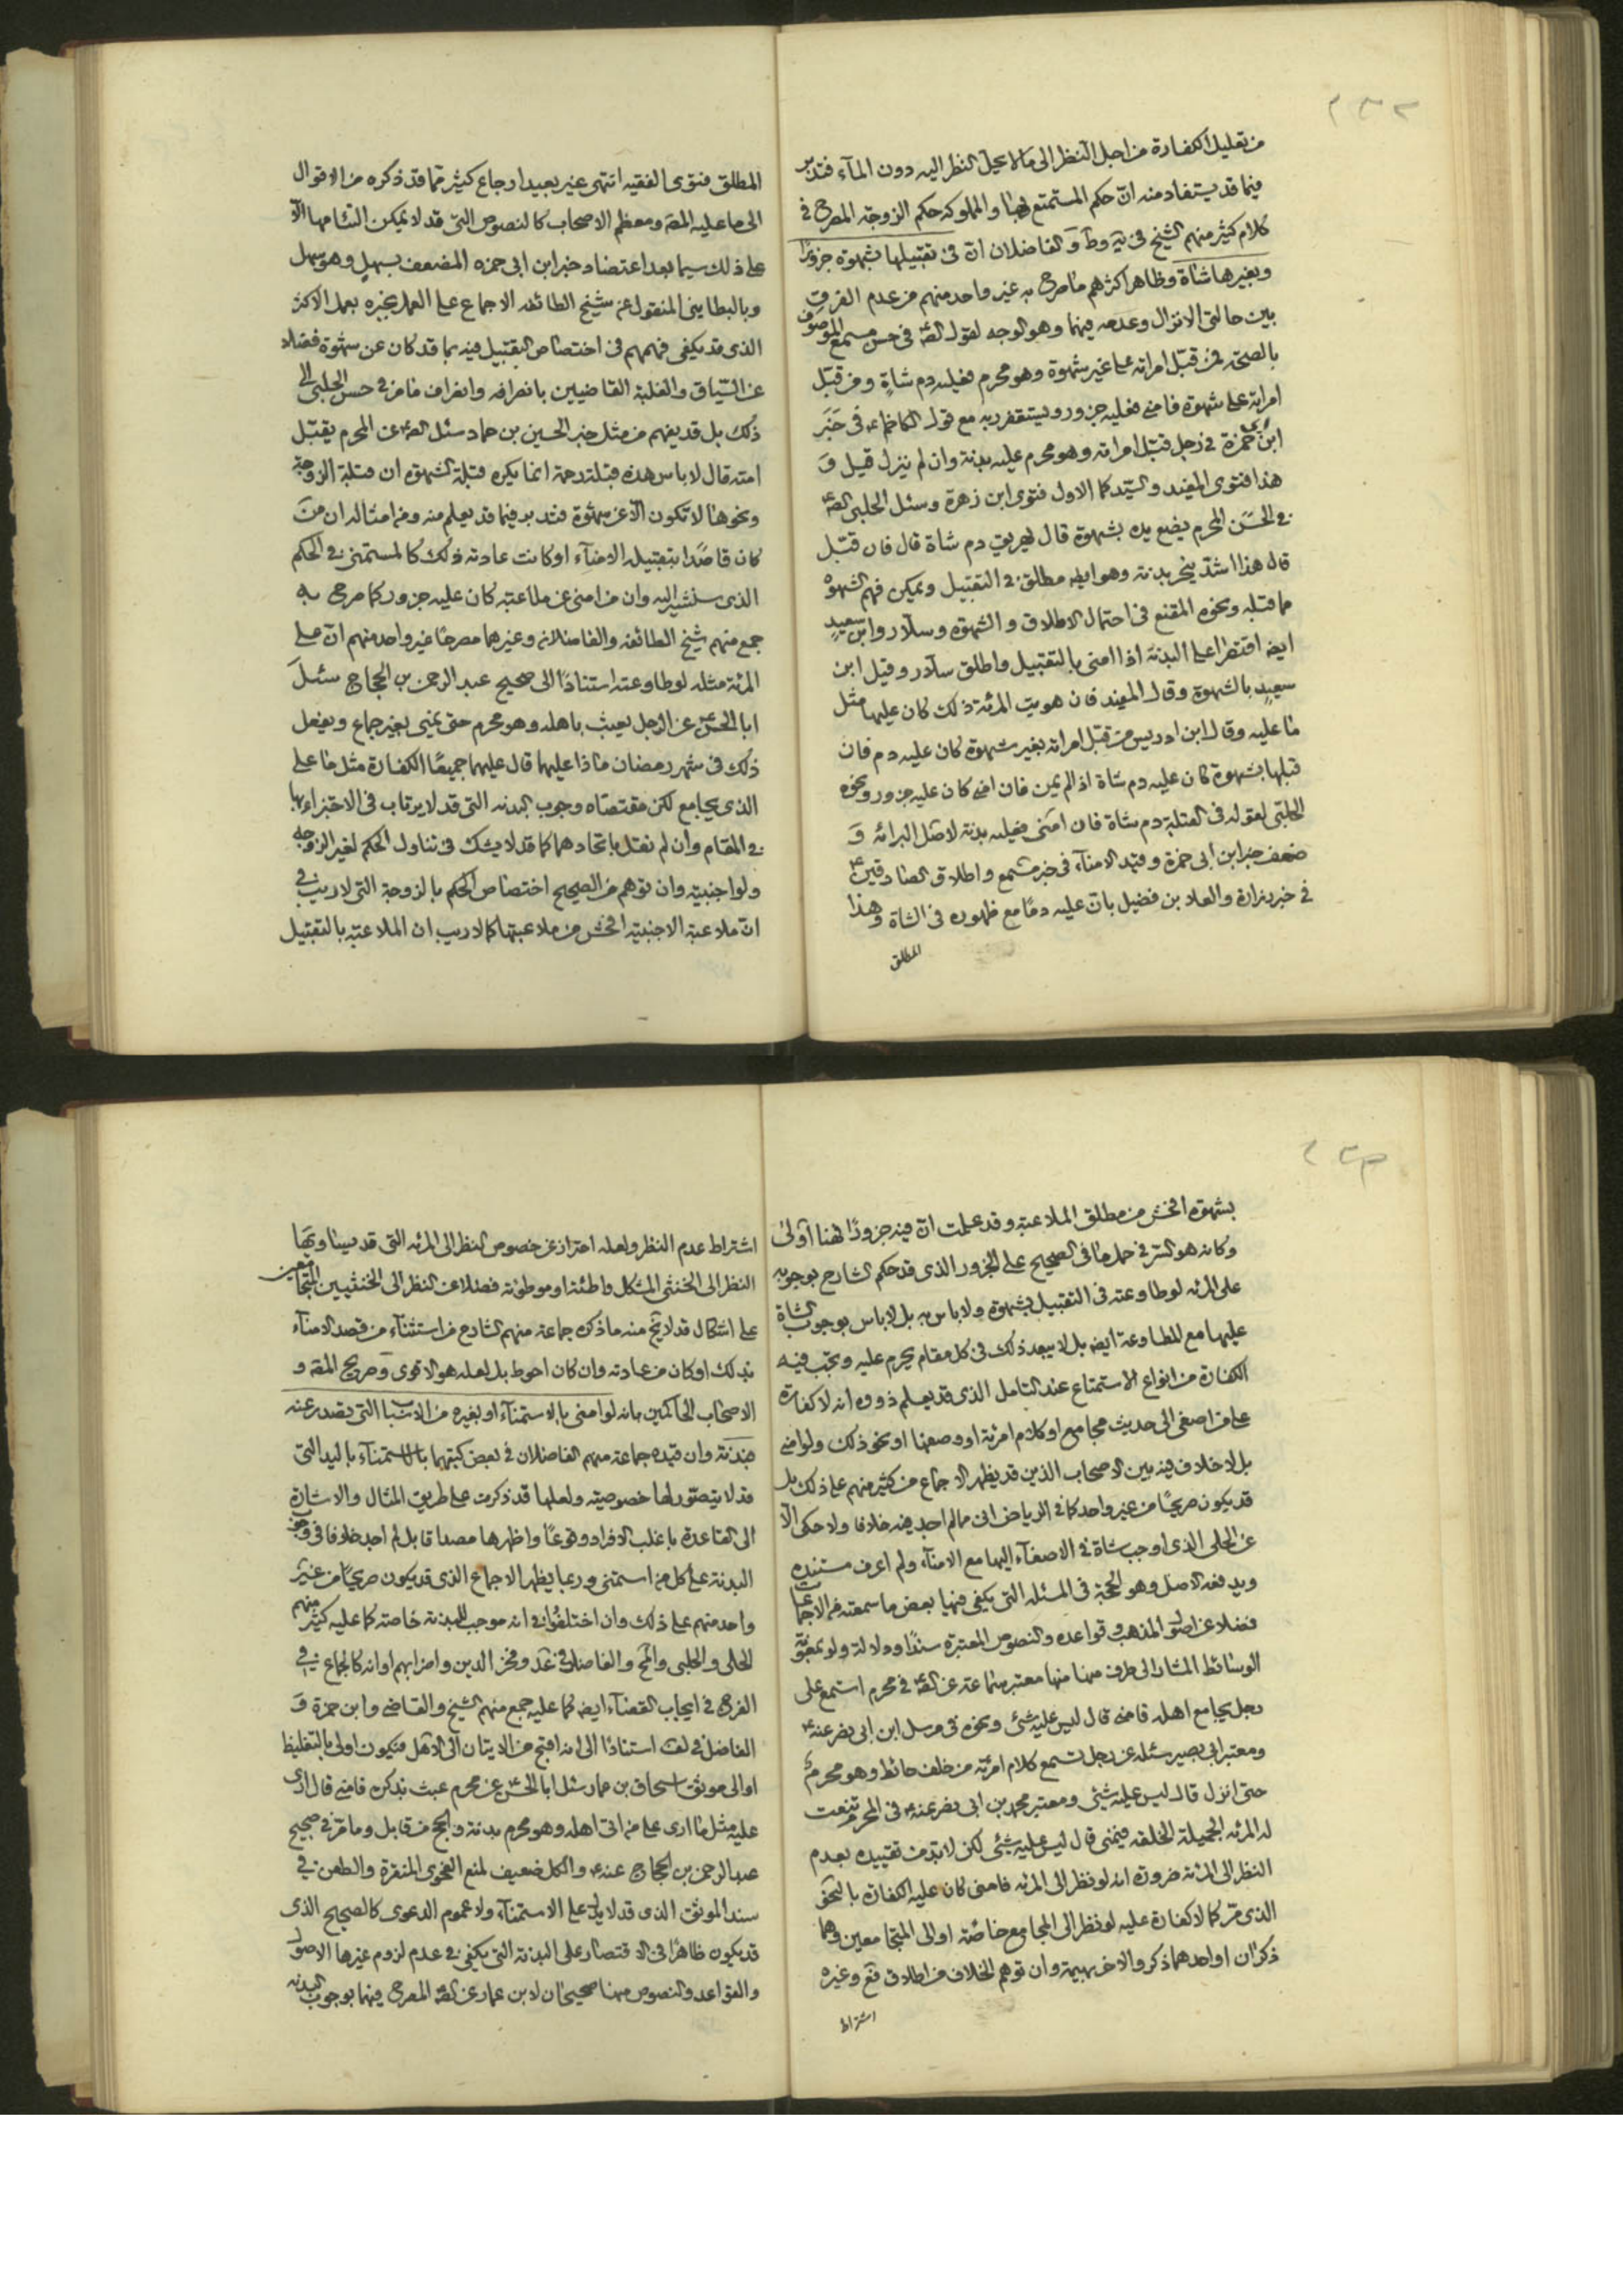 ٢٣٣
من تعليل الكفارة من اجل النظر الى ما لا يحل النظر اليه دون المآء فتدبر
فيما قد يستفاد منه ان حكم المستمتع بها والمملوكه حكم الزوجة المصرح في
كلام كثير منهم الشيخ في يه وط و الفاضلان ان في تقبيلها بشهوة جزورًا
وبغيرها شاة وظاهر اكثرهم ما صرح به غير واحد منهم من عدم الفرق
بين حالتى الانزال وعدمه فيهما وهو الوجه لقول الصه في حسن مسمع الموصوف
بالصحة فمن قبّل امراته على غير شهوة وهو محرم فعليه دم شاةٍ ومن قبّل
امراته على شهوة فامنى فعليه جزور ويستغفر ربه مع قول الكاظم ع في خَبَر
ابن ابى حمزة في رجل قبّل امراته وهو محرم عليه بدنة وان لم ينزل قيل و
هذا فتوى المفيد والسيّد كما الاول فتوى ابن زهرة وسئل الحلبى الصه
في الحَسَن المحرم يضع يده بشهوة قال يهريق دم شاة قال فان قبّل
قال هذا اشدّ ينحر بدنة وهو ايضه مطلق في التقبيل ويمكن فهم الشهوة
مما قبله ونحوه المقنع في احتمال الاطلاق و الشهوة وسلّار وابن سعيدٍ
ايضه اقتصرا على البدنة اذا امنى بالتقبيل واطلق سلّار وقيل ابن
سعيدٍ بالشهوة وقال المفيد فان هويت المرئة ذلك كان عليها مثل
ما عليه وقال ابن ادريس من قبّل امراته بغير شهوة كان عليه دم فان
قبلها بشهوة كان عليه دم شاة اذا لم يمن فان امنى كان عليه جزور ونحوه
الحلبّى لقوله في القبلة دم شاة فان امنى فعليه بدنة لاصل البرائه و
ضعف خبر ابن ابى حمزة وقيد الامنآء في خبر مسمع واطلاق الصادقين ع
في خبر زرارة والعلاء بن فضيل بان عليه دمًا مع ظهوره في الشاة وهذا
المطلق
المطلق فتوى الفقيه انتهى غير بعيد ارجاع كثير مما قد ذكره من الاقوال
الى ما عليه المصه ومعظم الاصحاب كالنصوص التى قد لا يمكن التئامها الّا
على ذلك سيما بعد اعتضاد خبر ابن ابى حمزه المضعف بسهلٍ وهو سهل
وبالبطاينى المنقول عن شيخ الطائفه الاجماع على العمل بخبره بعمل الاكثر
الذى قد يكفى فهمهم في اختصاص التقبيل فيه بما قد كان عن شهوة فضلا
عن السّياق والغلبة القاضيين بانصرافه وانصراف ما مر في حسن الحلبى الى
ذلك بل قد يفهم من مثل خبر الحسين بن حماد سئل الصه عن المحرم يقبّل
امته قال لا باس هذه قبلة رحمة انما يكره قبلة الشهوة ان قبلة الزوجة
ونحوها لا تكون الّا عن شهوة فتدبر فيما قد يعلم منه ومن امثاله ان مَن
كان قاصدًا بتقبيله الامنآء او كانت عادته ذلك كالمستمنى في الحكم
الذى ستشير اليه وان من امنى عن ملاعبته كان عليه جزور كما صرح به
جمع منهم شيخ الطائفه والفاضلان وغيرهما مصرحًا غير واحد منهم ان على
المرئة مثله لو طاوعته استنادًا الى صحيح عبد الرحمن بن الحجاج سئل
ابا الحسن ع عن الرجل يعبث باهله وهو محرم حتى يمنى بغير جماع ويفعل
ذلك في شهر رمضان ماذا عليهما قال عليهما جميعًا الكفارة مثل ما على
الذى يجامع لكن مقتضاه وجوب البدنه التى قد لا يرتاب في الاجتزاء بها
في المقام وان لم نقل باتحادهما كما قد لا يشك في تناول الحكم لغير الزوجه
ولو اجنبيته وان توهم من الصحيح اختصاص الحكم بالزوجة التى لا ريب في
ان ملاعبة الاجنبيه افحش من ملاعبتها كما لا ريب ان الملاعبه بالتقبيل
٢٣٤
بشهوه افحش من مطلق الملاعبه وقد علمت ان فيه جزورًا فهنا اَولىٰ
وكانه هو السّر في حمل ما في الصحيح على الجزور الذى قد حكم الشارح بوجوبه
على المرئه لو طاوعته في التقبيل بشهوة ولا باس به بل لا باس بوجوب الشاة
عليها مع المطاوعة ايضه بل لا يبعد ذلك في كل مقام يحرم عليه وتجب فيه
الكفارة من انواع الاستمتاع عند التامل الذى قد يعلم ذووه انه لا كفارة
على من اصغى الى حديث مجامع او كلام امرئة او وصفها او نحو ذلك ولو امنى
بل لا خلاف فيه بين الاصحاب الذين قد يظهر الاجماع من كثير منهم على ذلك بل
قد يكون صريحًا من غير واحد كما في الرياض انى مما لم اجد فيه خلافا ولا حكى الّا
عن الحلى الذى اوجب شاة في الاصغآء اليها مع الامنآء ولم اعرف مستنده
ويدفعه الاصل وهو الحجّة في المسئله التى يكفى فيها بعض ما سمعته من الاجماعات
فضلا عن اصول المذهب وقواعده والنصوص المعتبرة سندًا ودلالة ولو بمعونة
الوسائط المشار الى طرف منها منها معتبر سماعة عن الصه في محرم استمع على
رجل يجامع اهله فامنى قال ليس عليه شئ ونحوه في مرسل ابن ابى نصر عنه ع
ومعتبر ابى بصير سئله عن رجل تسمع كلام امرئة من خلف حائط وهو محرم
حتى انزل قال ليس عليه شئ ومعتبر محمد بن ابى نصر عنه ع في المحرم تنعت
له المرئه الجميلة الخلقه فيمنى قال ليس عليه شئ لكن لا بد من تقييده بعدم
النظر الى المرئه ضرورة انه لو نظر الى المرئه فامنى كان عليه الكفارة بالنحو
الذى مرّ كما لا كفارة عليه لو نظر الى المجامع خاصّة او الى المتجامعين وهما
ذكران او احدهما ذكر والاخر بهيمة وان توهم الخلاف من اطلاق فع وغيره
اشتراط
اشتراط عدم النظر ولعله احتراز عن خصوص النظر الى المرئه التى قد يساويها
النظر الى الخنثى المشكل واطئة او موطوئة فضلا عن النظر الى الخنثيين المتجامعين
على اشكال قد لاتج منه ما ذكره جماعة منهم الشارح من استثنآء من قصد الامنآء
بذلك او كان من عادته وان كان احوط بل لعله هو الاقوى وصريح المصه و
الاصحاب الحاكمين بانه لو امنى بالاستمنآء او بغيره من الاسباب التى يصدر عنه
فبدنة وان قيده جماعة منهم الفاضلان في بعض كتبهما بالاستمنآء باليد التى
قد لا يتصوّر لها خصوصيته ولعلها قد ذكرت على طريق المثال والاشارة
الى القاعدة باغلب الافراد وقوعًا واظهرها مصداقا بل لم اجد خلافا في وجوب
البدنة على كل من استمنى وربما يظهر الاجماع الذى قد يكون صريحًا من غير
واحد منهم على ذلك وان اختلفوا في انه موجب للبدنة خاصته كما عليه كثير منهم
الحلى والحلبى والمح والفاضلان في عد وفخر الدين واضرابهم او انه كالجماع في
الفرج في ايجاب القضآء ايضه كما عليه جمع منهم الشيخ والقاضى وابن حمزة و
الفاضل في لف استنادًا الى انه اقبح من الاتيان الى الاهل فيكون اولى بالتغليظ
او الى موثق اسحاق بن عمار سئل ابا الحسن ع عن محرم عبث بذكره فامنى قال ارى
عليه مثل ما ارى على من اتى اهله وهو محرم بدنة والحج من قابل وما مرّ في صحيح
عبد الرحمن بن الحجاج عنه ع والكل ضعيف لمنع الفحوى المنقرة والطعن في
سند الموثق الذى قد لا يدل على الاستمنآء ولا عموم الدعوى كالصحيح الذى
قد يكون ظاهرًا في الاقتصار على البدنة التى يكفى في عدم لزوم غيرها الاصول
والقواعد والنصوص منها صحيحان لابن عمار عن الصه المصرح فيهما بوجوب البدنه